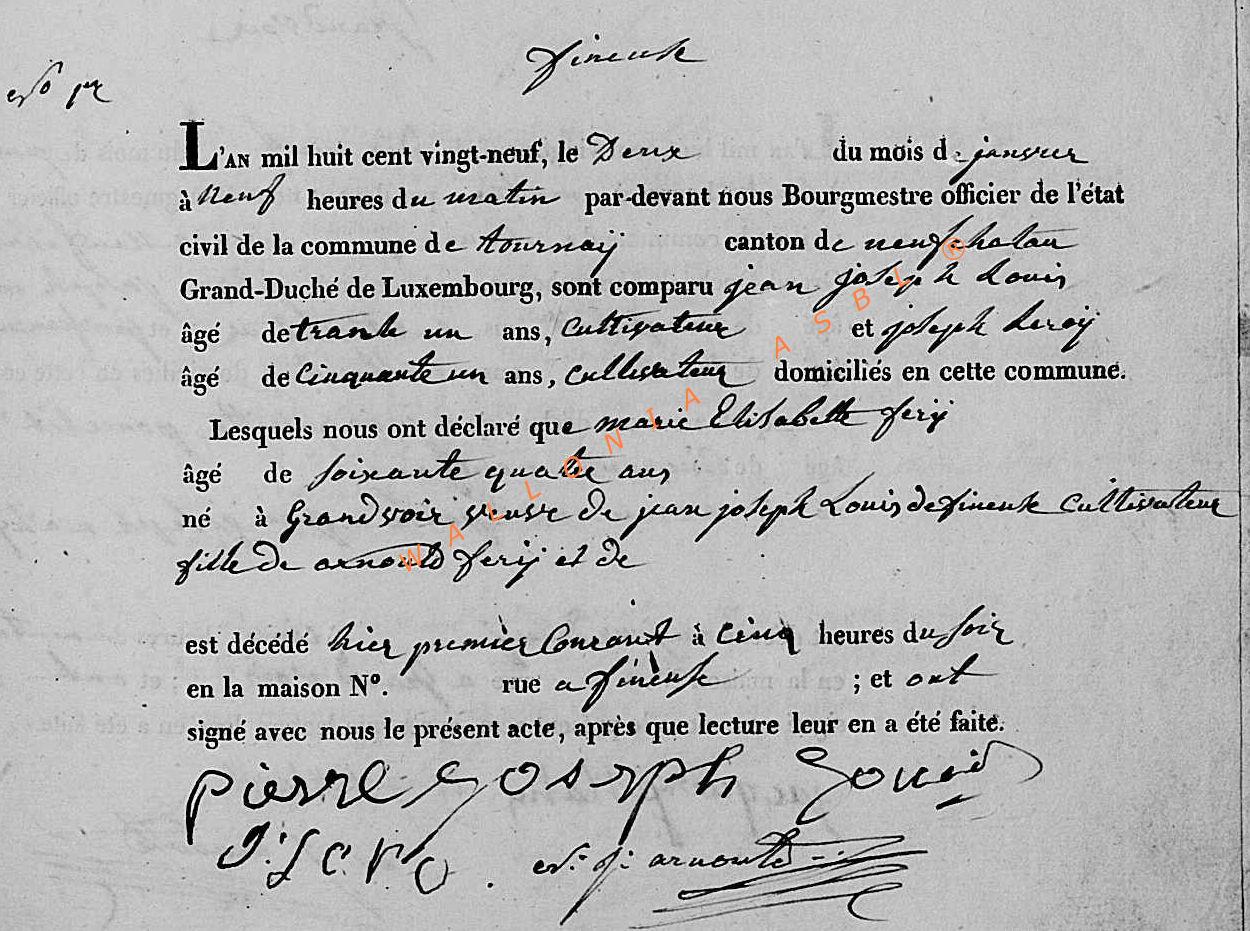 fineuse
N° 1er
L'AN mil huit cent vingt-neuf, le Deux du mois de janvier
à neuf heures du matin par-devant nous Bourgmestre officier de l'état
civil de la commune de tournaÿ canton de neufchatau
Grand-Duché de Luxembourg, sont comparu jean joseph Louis
âgé de trante un ans, cultivateur et joseph Leroÿ
âgé de Cinquante un ans, cultivateur domiciliés en cette commune.
Lesquels nous ont déclaré que marie Elisabette ferÿ
âgé de soixante quatre ans
né à Grandvoir veuve de jean joseph Louis de fineuse cultivateur
fille de arnould ferÿ et de
est décédé hier premier Courant à cinq heures du soir
en la maison N°. rue a fineuse ; et ont
signé avec nous le présent acte, après que lecture leur en a été faite.
pierre Joseph Louis
J: j: arnould
WALLONIA ASBL ®